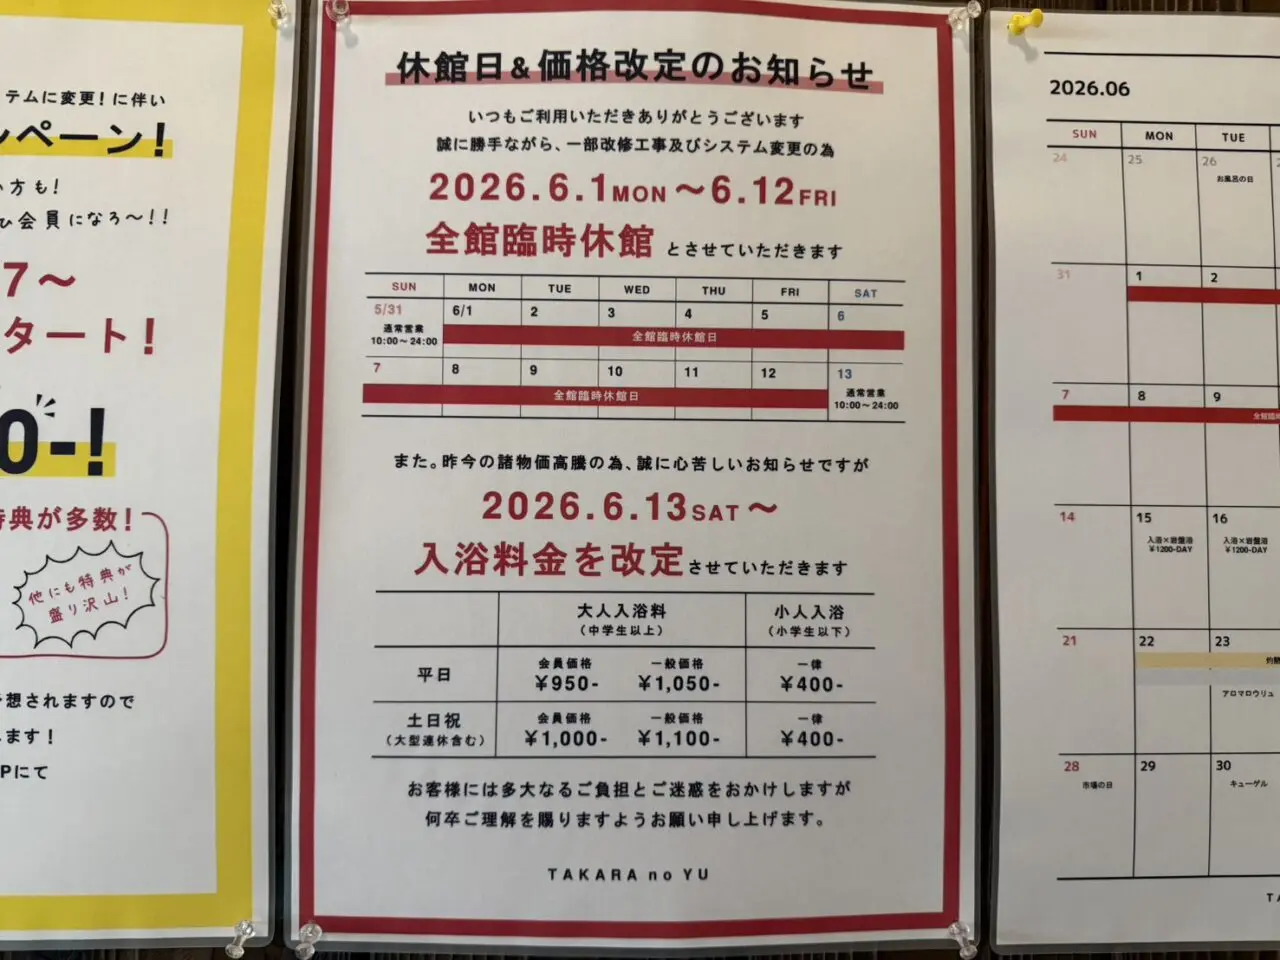 テムに変更！に伴い
ンペーン！
い方も！
ひ会員になろ〜！！
7〜
タート！
0-！
特典が多数！
他にも特典が
盛り沢山！
想されますので
ます！
Pにて
休館日&価格改定のお知らせ
いつもご利用いただきありがとうございます
誠に勝手ながら、一部改修工事及びシステム変更の為
2026.6.1MON〜6.12FRI
全館臨時休館 とさせていただきます
SUN MON TUE WED THU FRI SAT
5/31 6/1 2 3 4 5 6
通常営業
10:00〜24:00
全館臨時休館日
7 8 9 10 11 12 13
全館臨時休館日
通常営業
10:00〜24:00
また。昨今の諸物価高騰の為、誠に心苦しいお知らせですが
2026.6.13SAT〜
入浴料金を改定させていただきます
大人入浴料 小人入浴
（中学生以上） （小学生以下）
平日
会員価格 一般価格 一律
¥950- ¥1,050- ¥400-
土日祝
（大型連休含む）
会員価格 一般価格 一律
¥1,000- ¥1,100- ¥400-
お客様には多大なるご負担とご迷惑をおかけしますが
何卒ご理解を賜りますようお願い申し上げます。
TAKARA no YU
2026.06
SUN MON TUE
24 25 26
お風呂の日
31 1 2
7 8 9
全館臨
14 15 16
入浴×岩盤浴 入浴×岩盤浴
¥1200-DAY ¥1200-DAY
21 22 23
灼熱
アロマロウリュ
28 29 30
市場の日 キューゲル
TA